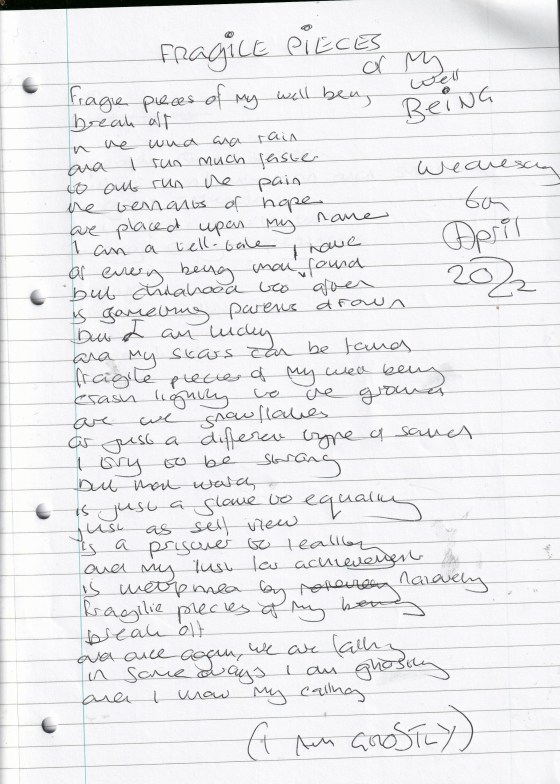 FRAGILE PIECES
of My
well
BEING
fragile pieces of my well being
break off
in the wind and rain
and I run much faster
to out run the pain
the remnants of hope
are placed upon my name
I am a tell-tale
of every being now I have found
but childhood too often
is something parents drown
but I am lucky
and my scars can be tamed
fragile pieces of my well being
crash lightly to the ground
are we snowflakes
or just a different type of sound
I try to be strong
but man
is just a slave to equality
just as self view
is a prisoner to reality
and my lust for achievement
is by
fragilie piecies of my
break off
and once again, we are falling
in some ways I am ghosting
and I know my calling
(I AM GHOSTLY)
Wednesday
6th
April
2022